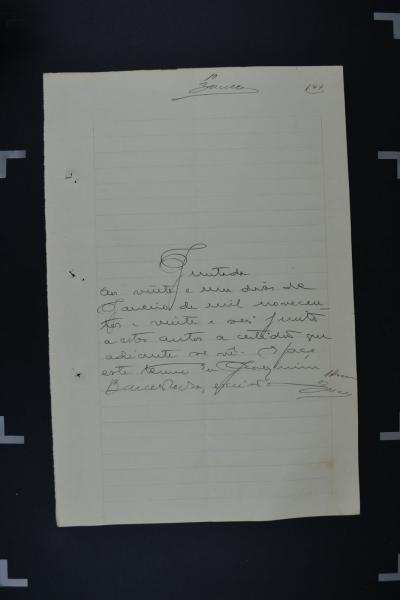 Juntada
Aos vinte e um dias de
Janeiro de mil novecen-
tos e vinte e seis junto
a estes autos a certidão que
adiante se vê. E faço
este termo. Eu Joaquim
escrivão